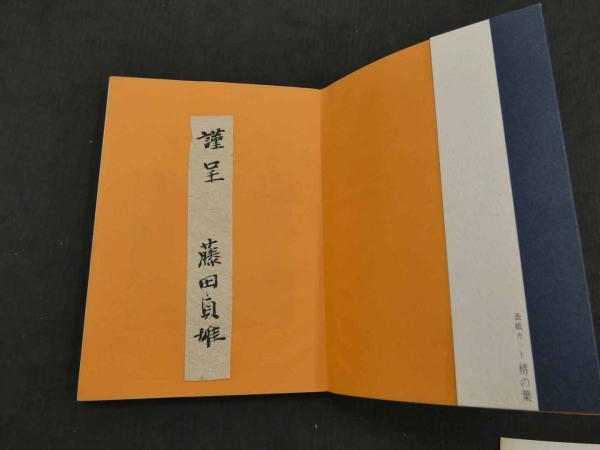 謹呈
藤田貞雄
表紙カット 楮の葉